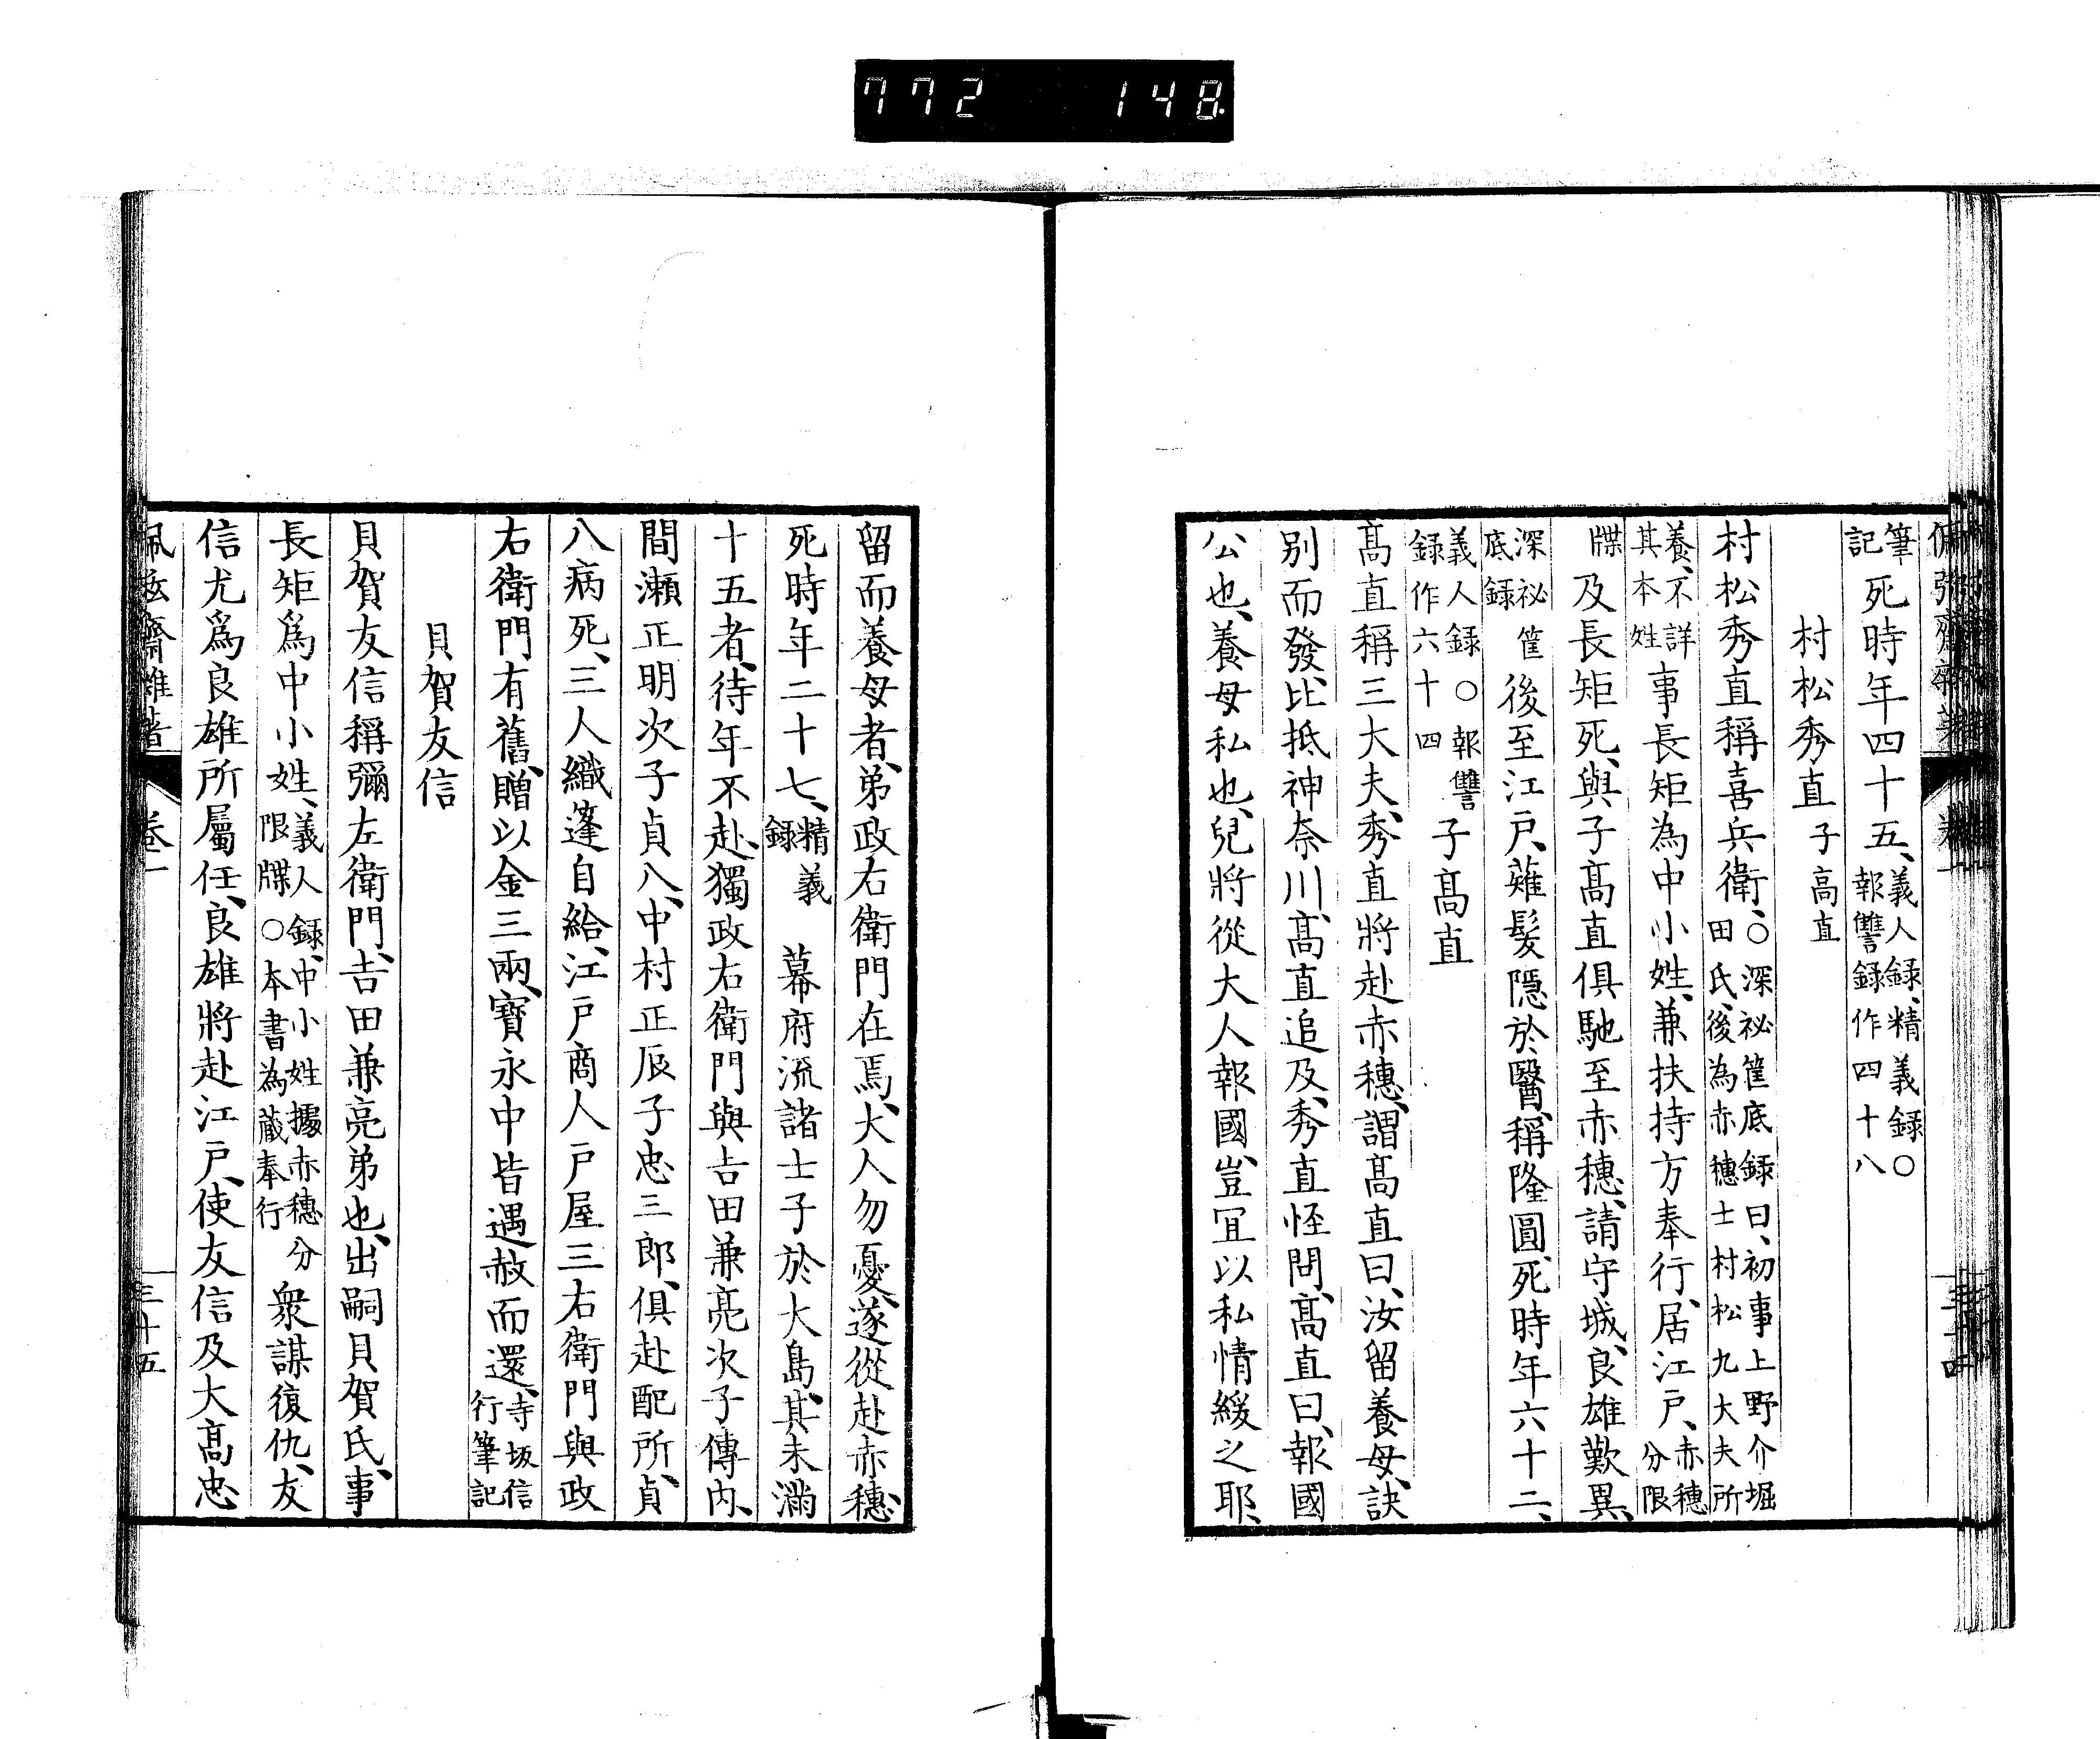 772 148
筆記死時年四十五、義人録、精義録○報讐録作四十八
村松秀直 子高直
村松秀直稱喜兵衛、○深祕筐底録曰、初事上野介堀田氏、後為赤穗士村松九大夫所
養、不詳其本姓事長矩為中小姓、兼扶持方奉行、居江戸、赤穗分限
牒及長矩死、與子髙直俱馳至赤穗、請守城、良雄歎異、
深祕筐底録後至江戸、薙髮隱於醫、稱隆圓、死時年六十二、
義人録○報讐録作六十四子髙直
髙直稱三大夫、秀直將赴赤穗、謂髙直曰、汝留養母、訣
別而發、比抵神奈川、髙直追及、秀直怪問、髙直曰、報國
公也、養母私也、兒將從大人報國、豈冝以私情緩之耶、
留而養母者、弟政右衛門在焉、大人勿憂、遂從赴赤穗、
死時年二十七、精義録 幕府流諸士子於大島、其未滿
十五者、待年不赴、獨政右衛門與吉田兼亮次子傳内、
間瀬正明次子貞八、中村正辰子忠三郎、俱赴配所、貞
八病死、三人織篷自給、江戸商人戸屋三右衛門與政
右衛門有舊、贈以金三兩、寶永中皆遇赦而還、寺坂信行筆記
貝賀友信
貝賀友信稱彌左衛門、吉田兼亮弟也、出嗣貝賀氏、事
長矩爲中小姓、義人録、中小姓據赤穗分限牒○本書為藏奉行衆謀復仇、友
信尤爲良雄所屬任、良雄將赴江戸、使友信及大髙忠
佩弦齋雜著 卷一 三十五